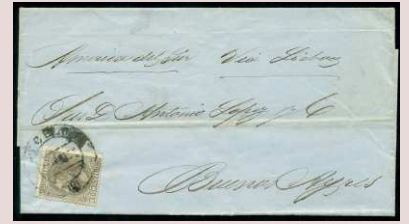 America del Sur Via Lisboa
Antonio Lopez y C
Buenos Ayres